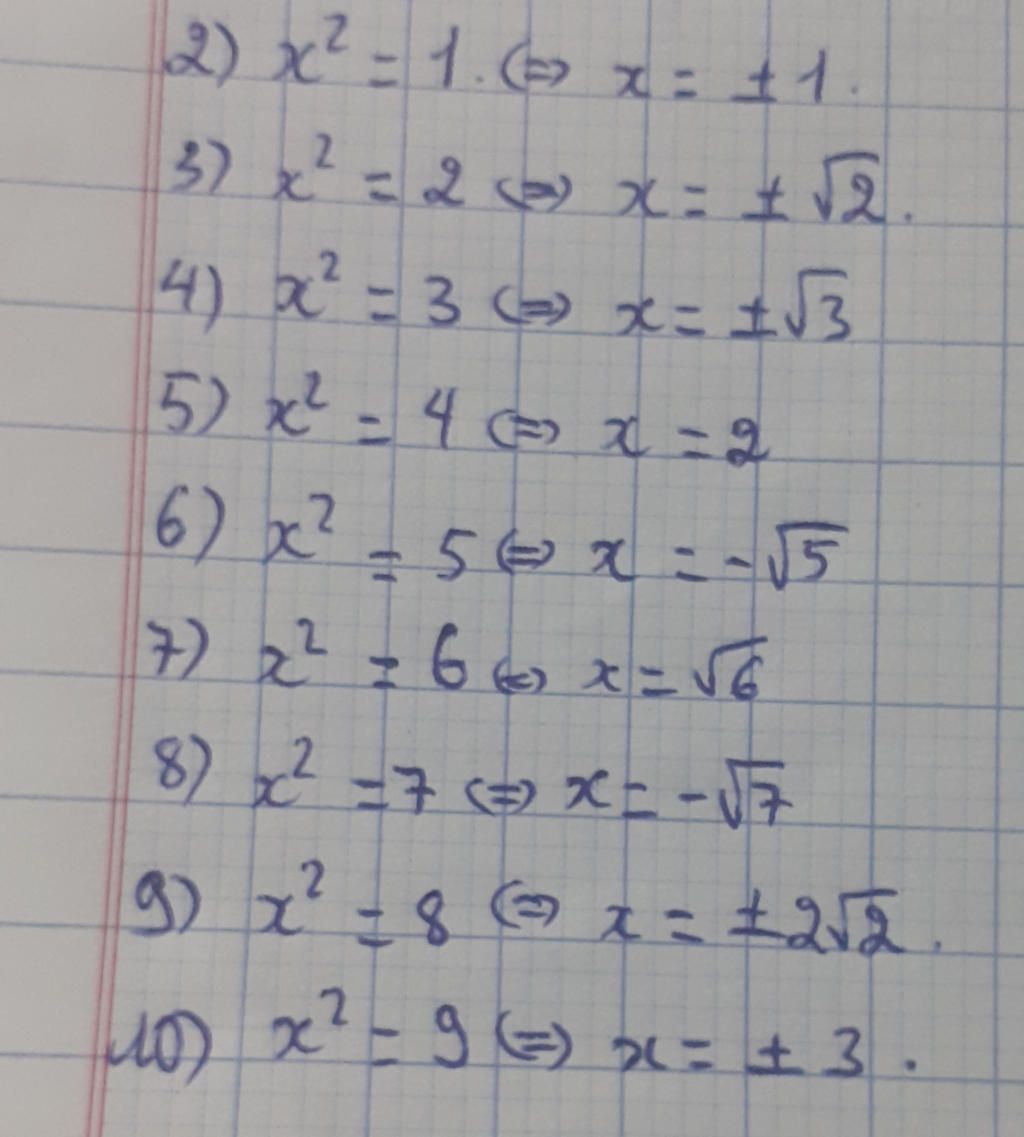 2) x² = 1. ⇔ x = ± 1.
3) x² = 2 ⇔ x = ± √2.
4) x² = 3 ⇔ x = ±√3
5) x² = 4 ⇔ x = 2
6) x² = 5 ⇔ x = -√5
7) x² = 6 ⇔ x = √6
8) x² = 7 ⇔ x = -√7
9) x² = 8 ⇔ x = ±2√2.
10) x² = 9 ⇔ x = ± 3.